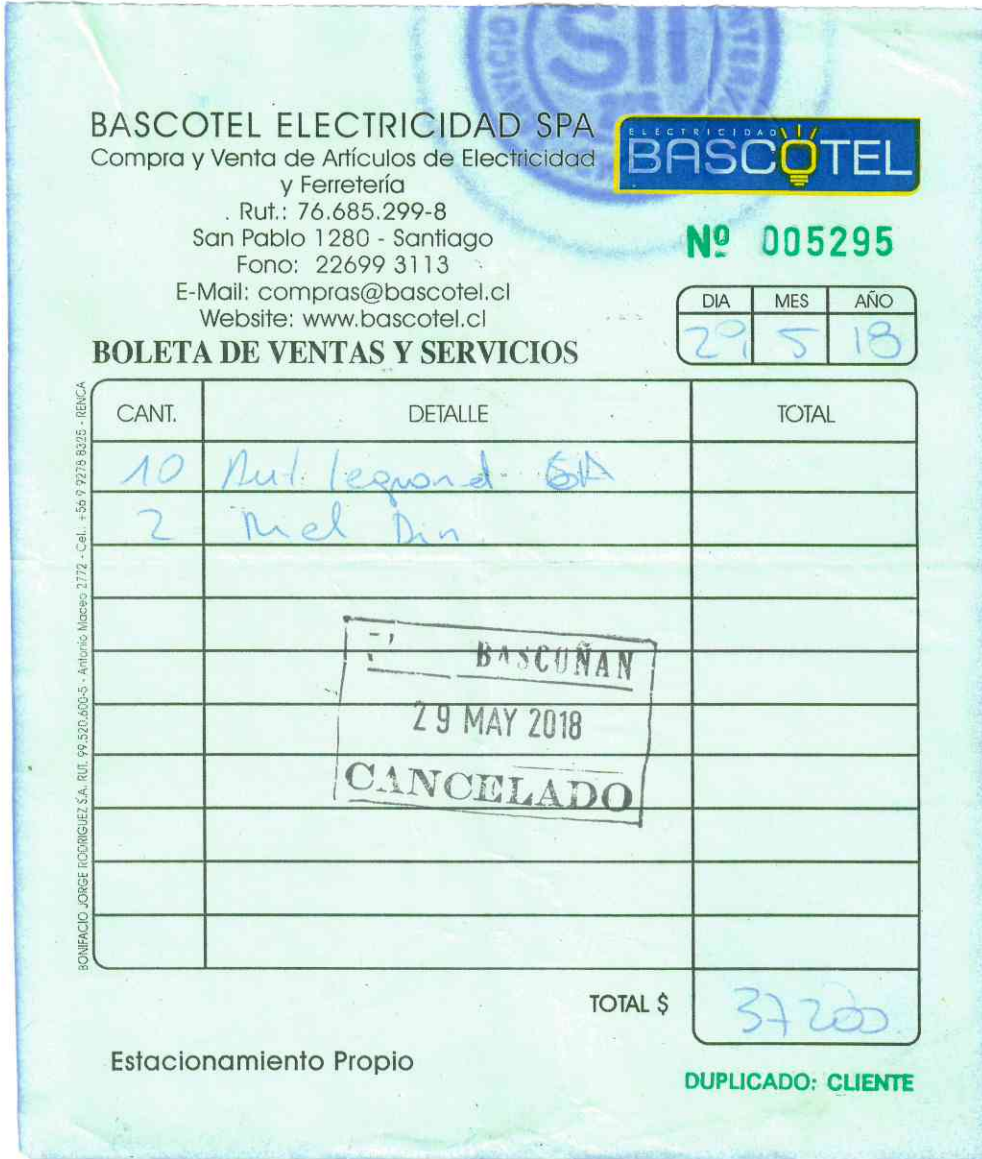 BASCOTEL ELECTRICIDAD SPA
Compra y Venta de Artículos de Electricidad
y Ferretería
. Rut.: 76.685.299-8
San Pablo 1280 - Santiago
Fono: 22699 3113
E-Mail: compras@bascotel.cl
Website: www.bascotel.cl
BOLETA DE VENTAS Y SERVICIOS
SII
ELECTRICIDAD
BASCOTEL
Nº 005295
DIA MES AÑO
29 5 18
CANT. DETALLE TOTAL
10 Aut. legrand 6A
2 Din
BASCUÑAN
29 MAY 2018
CANCELADO
TOTAL $ 37200.
Estacionamiento Propio
DUPLICADO: CLIENTE
BONIFACIO JORGE RODRIGUEZ S.A. RUT. 99.520.600-5 - Antonio Maceo 2772 - Cel.: +56 9 9278 8325 - RENCA